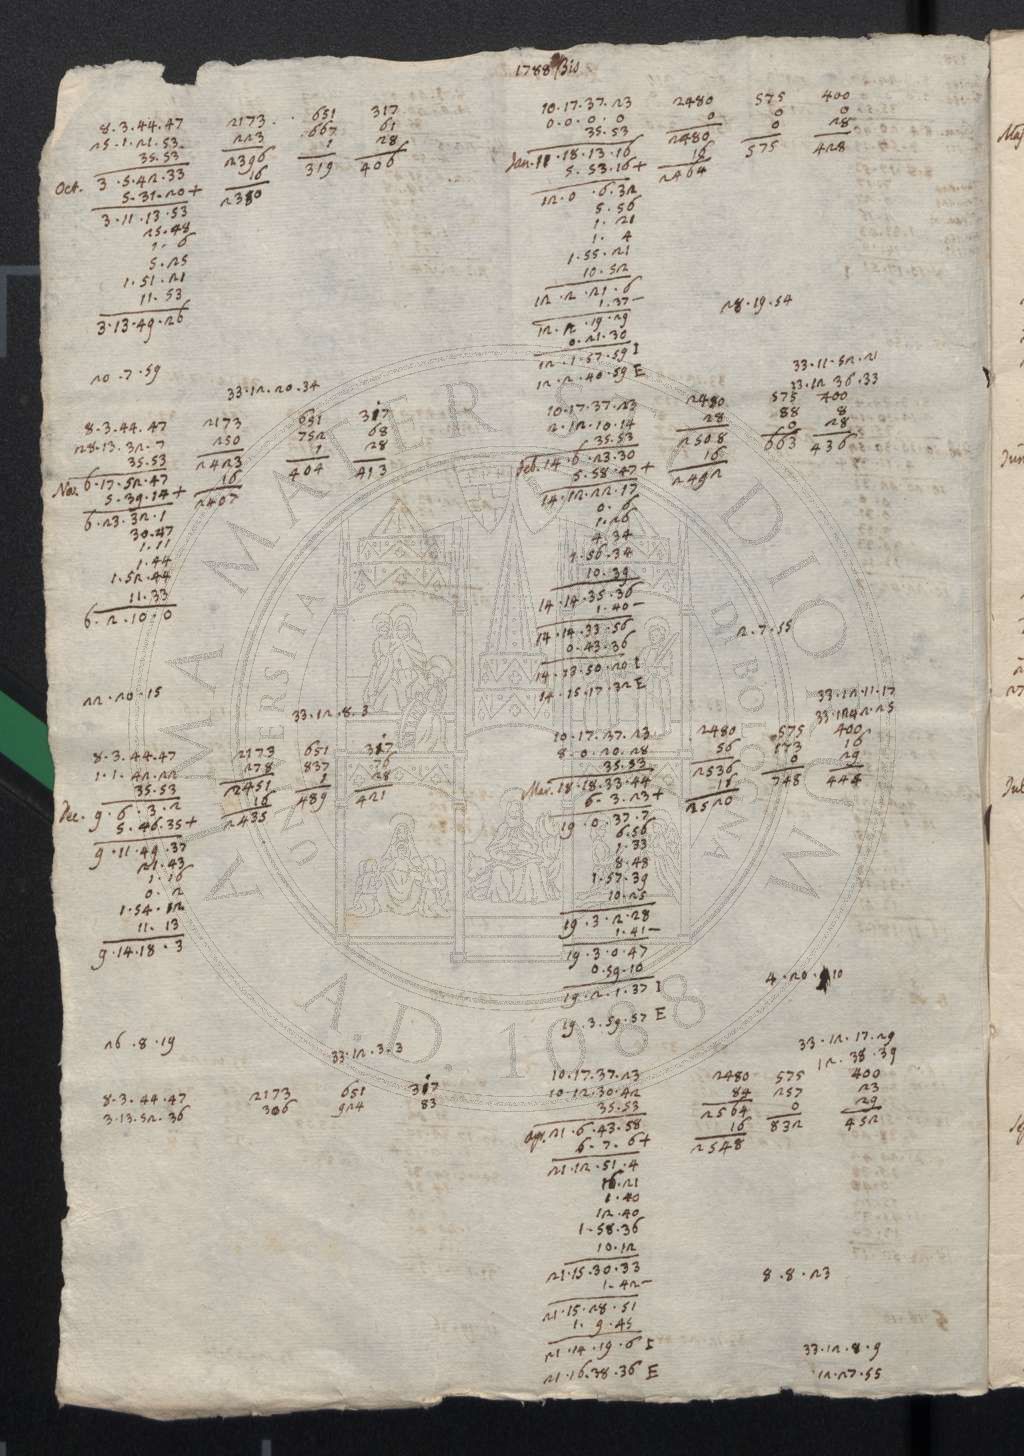 8.3.44.47 2173 651 317
25.1.21.53 223 667 61
35.53 2396 1 28
Oct. 3.5.42.33 16 319 406
5.31.20+ 2380
3.11.13.53
25.48
1.6
5.25
1.51.21
11.53
3.13.49.26
20.7.59
33.12.20.34
8.3.44.47 2173 651 317
28.13.32.7 250 752 68
35.53 2423 1 28
Nov. 6.17.52.47 16 404 413
5.39.14+ 2407
6.23.32.1
30.47
1.11
1.44
1.52.44
11.33
6.2.10.0
22.20.15
33.12.8.3
8.3.44.47 2173 651 317
1.1.42.22 278 837 76
35.53 2451 1 28
Dec. 9.6.3.2 16 489 421
5.46.35+ 2435
9.11.49.37
21.43
1.16
0.2
1.54.12
11.13
9.14.18.3
26.8.19
33.12.3.3
8.3.44.47 2173 651 317
3.13.52.36 306 924 83
1788 Bis
10.17.37.23 2480 575 400
0.0.0.0 0 0 0
35.53 2480 0 28
Jan. 11.18.13.16 16 575 428
5.53.16+ 2464
12.0.6.32
5.56
1.21
1.4
1.55.21
10.52
12.2.21.6
1.37-
12.2.19.29
0.21.30
12.1.57.59 I
12.2.40.59 E
28.19.54
33.11.52.21
13.12 36.33
10.17.37.23 2480 575 400
2.12.10.14 28 88 8
35.53 2508 0 28
Feb. 14.6.23.30 16 663 436
5.58.47+ 2492
14.12.22.17
0.6
1.26
4.34
1.56.34
10.39
14.14.35.36
1.40-
14.14.33.56
0.43.36
14.13.50.20 I
14.15.17.32 E
2.7.55
33.12.11.17
10.17.37.23 2480 575 400
8.0.20.28 56 173 16
35.53 2536 0 29
Mar. 18.18.33.44 16 748 445
6.3.23+ 2520
19.0.37.7
6.56
1.33
8.48
1.57.39
10.25
19.3.2.28
1.41-
19.3.0.47
0.59.10
19.2.1.37 I
19.3.59.57 E
4.20.10
33.12.17.29
12.38.39
10.17.37.23 2480 575 400
10.12.30.42 84 257 23
35.53 2564 0 29
Apr. 21.6.43.58 16 832 452
6.7.6+ 2548
21.12.51.4
16.21
1.40
12.40
1.58.36
10.12
21.15.30.33
1.42-
21.15.28.51
1.9.45
21.14.19.6 I
21.16.38.36 E
8.8.23
33.12.8.9
12.27.55
ALMA MATER STUDIORUM
UNIVERSITÀ DI BOLOGNA
A.D. 1088